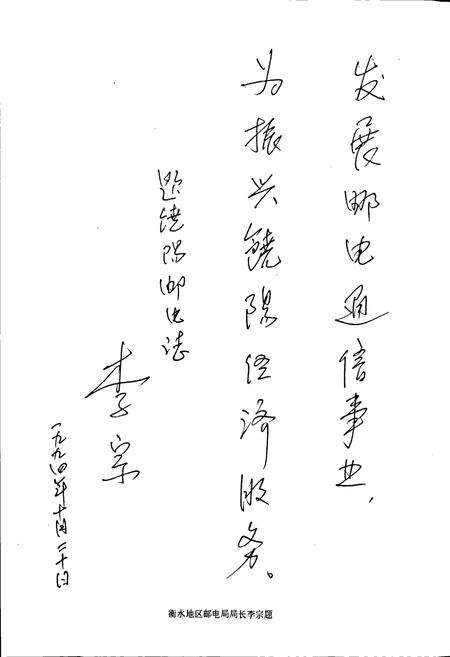 发展邮电通信事业，
为振兴饶阳经济服务。
题饶阳邮电志
李宗
一九九四年十月二十日
衡水地区邮电局局长李宗题